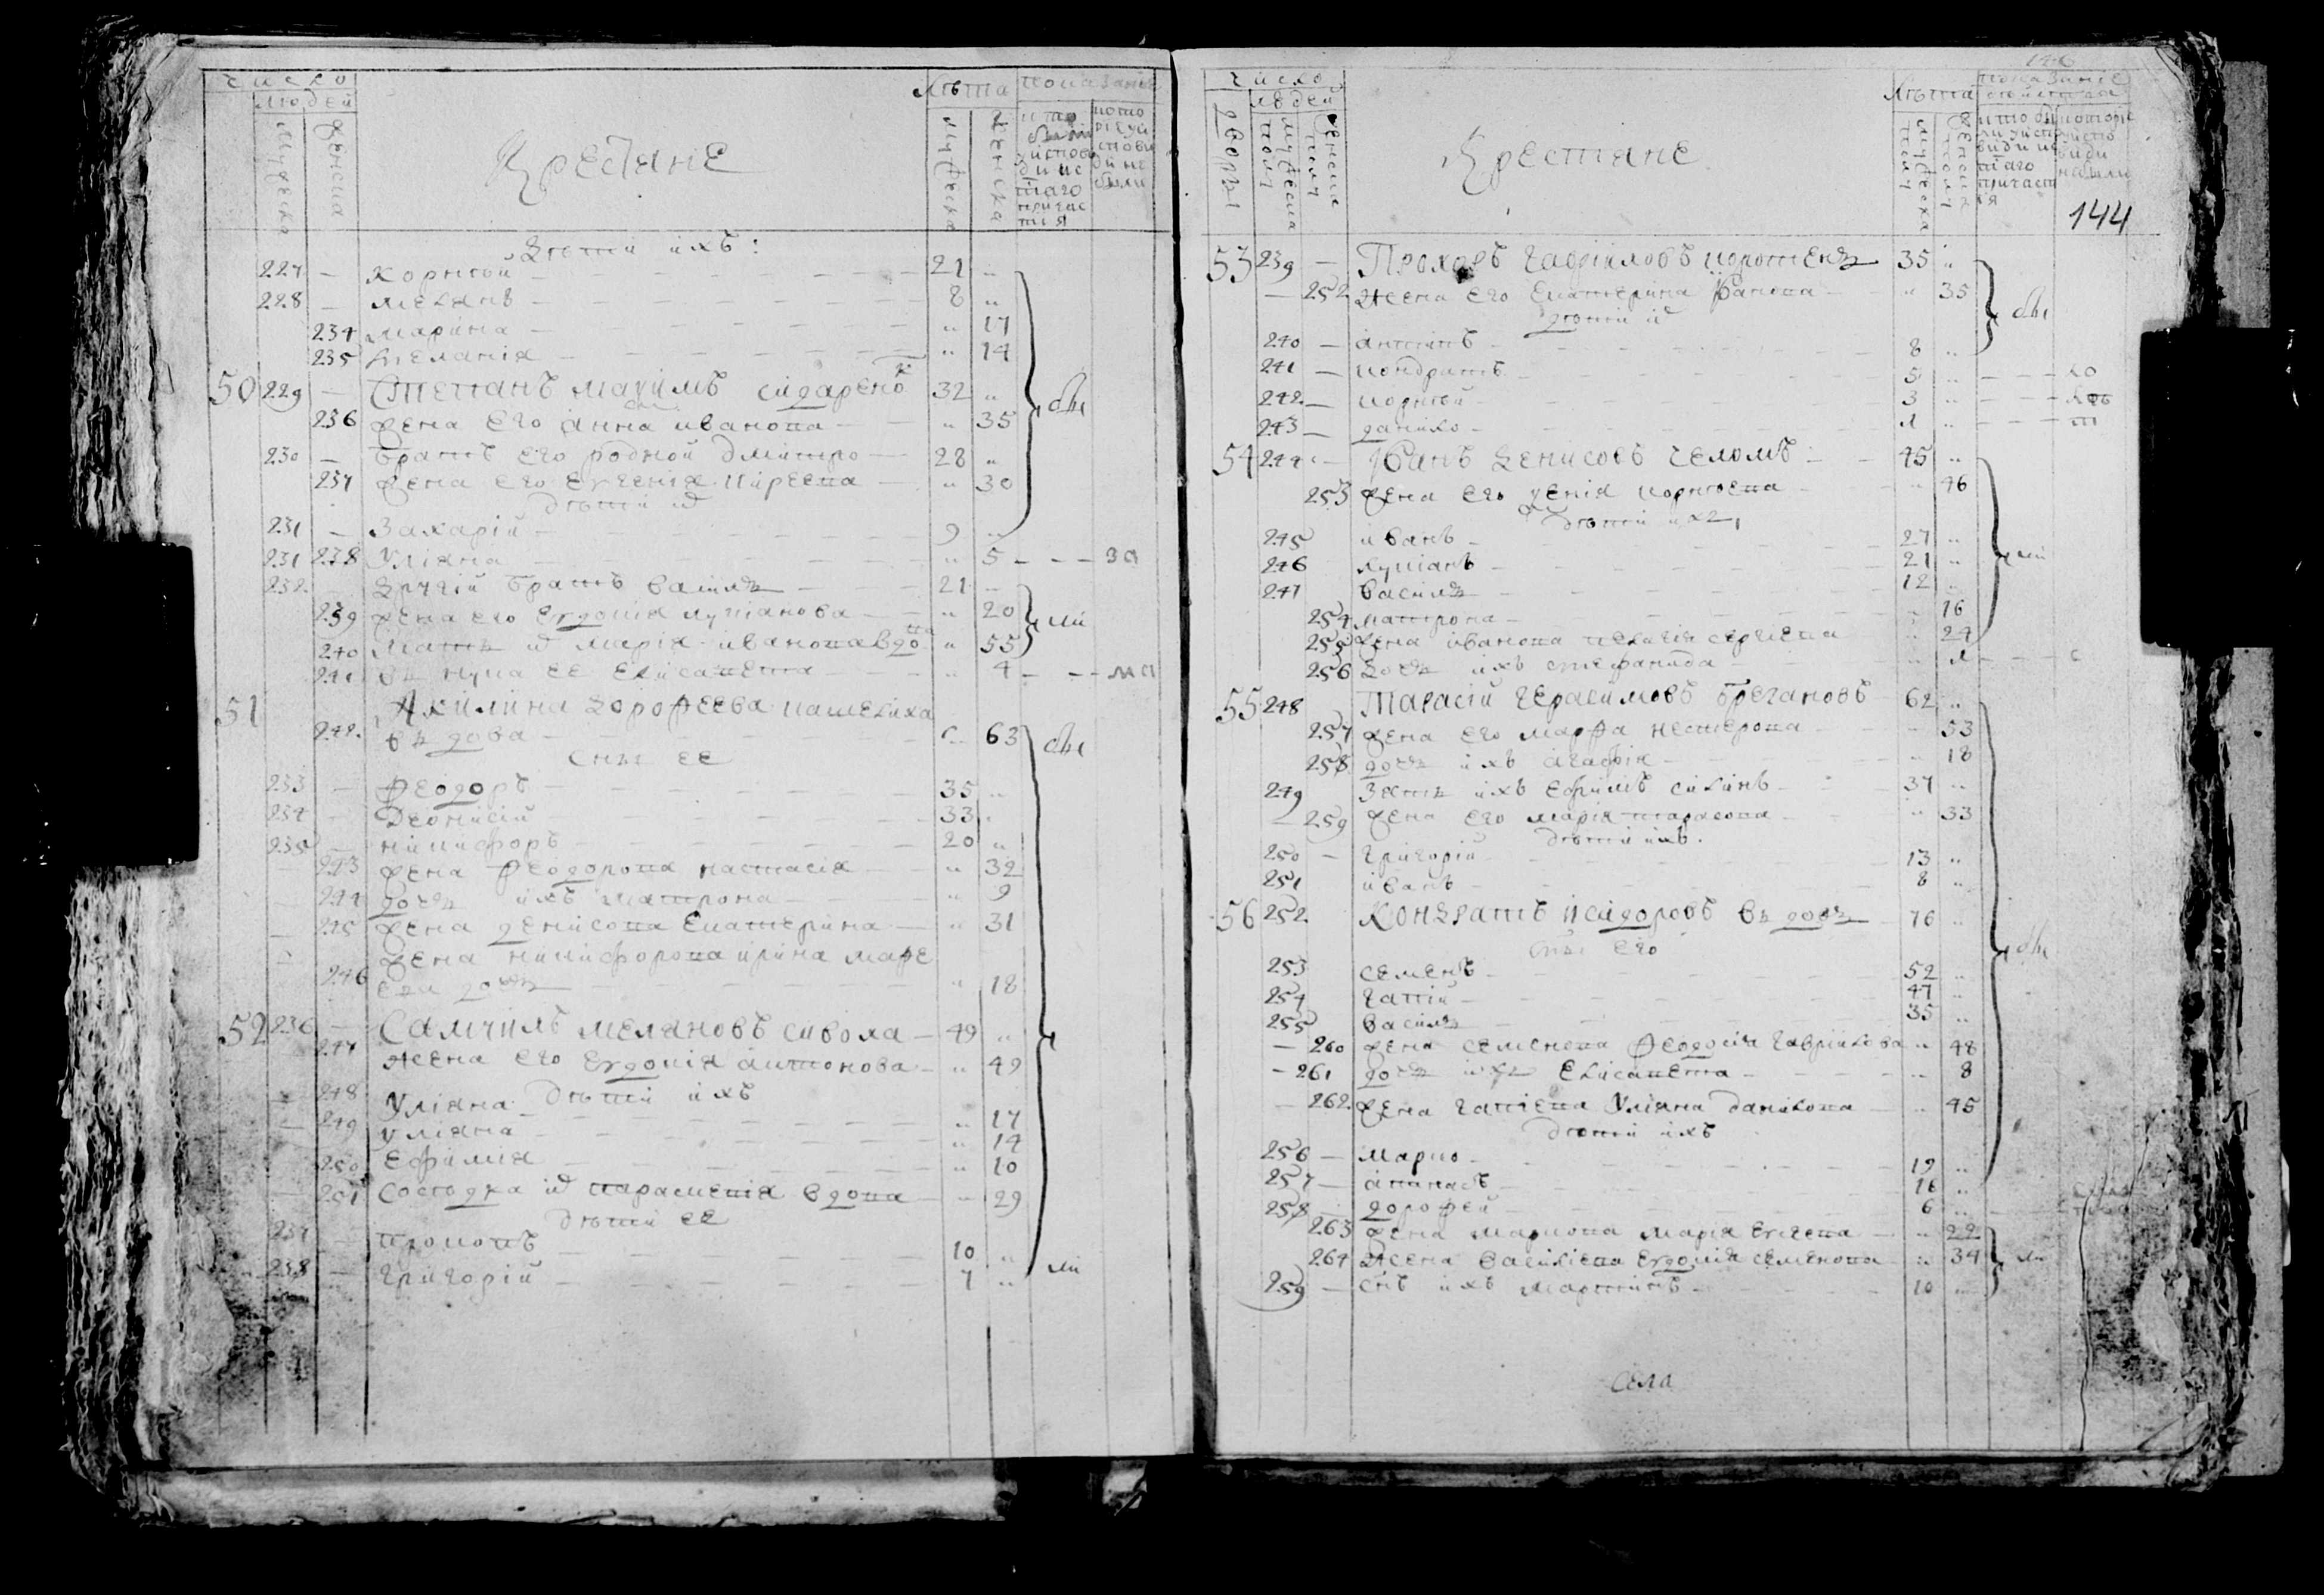 число
людей
мужеска
женска
Крестяне
Лѣта
мужеска
женска
показание
Дѣти ихъ:
227 — Корнѣй — 21 "
228 — Мелянъ — 8 "
234 Марина — " 17
235 Мелания — " 14
50 229 — Степанъ Максимъ Сидаренко 32 "
236 жена его Анна Иванова — " 35
230 — братъ его родной Дмитро — 28 "
237 жена его Евгения Киреева — " 30
Дѣти их
231 — Захарий — 9 "
231 238 Улияна — " 5 — — — за
232 — Другий братъ Василь — 21 "
239 жена его Евдокия Лукианова — " 20
240 Мать их Мария Иванова вдова " 55
241 внука ее Елисавета — " 4 — — — ма
51 Акилина Дорофеева Кашелиха
242 вдова — " 63
Сны ее
233 — Феодоръ — 35 "
234 — Деонисий — 33 "
235 — Никифоръ — 20 "
243 жена Феодорова Настасия — " 32
244 дочь ихъ Матрона — " 9
245 жена Денисова Екатерина — " 31
жена Никифорова Ирина
246 — " 18
52 236 — Самуилъ Меляновъ Сивоха — 49 "
247 жена его Евдокия Антонова — " 49
Дѣти ихъ
248 Улияна — " 17
249 Улияна — " 14
250 Ефимия — " 10
251 Сосѣдка их Параскевия вдова — " 29
Дѣти ее
237 — Прокопъ — 10 "
238 — Григорий — 7 "
146
число
людей
дворы
мужеска полу
женска полу
Крестяне
Лѣта
мужеска полу
женска полу
показание
144
53 239 — Прохоръ Гавриловъ Коротенъ 35 "
— 252 жена его Екатерина Иванова — " 35
дѣти их
240 — Антипъ — 8 "
241 — Кондратъ — 5 " — — — ко
242 — Корнѣй — 3 " — — — лѣ
243 — Данило — 1 " — — — т
54 244 — Иванъ Денисовъ Челомъ — 45 "
253 жена его Ксения Корнѣева — " 46
Дѣти ихъ
245 Иванъ — 27 "
246 Лукианъ — 21 "
247 Василь — 12 "
254 Матрона — " 16
255 жена Иванова Пелагия Сергиева " 24
256 Дочь ихъ Стефанида — " 1 — — — с
55 248 Тарасий Герасимовъ Брегановъ 62 "
257 жена его Марфа Нестерова — " 53
258 дочь ихъ Агафия — " 18
249 Зять ихъ Ефимъ Силинъ — 37 "
— 259 жена его Мария Тарасова — " 33
Дѣти ихъ.
250 — Григорий — 13 "
251 Иванъ — 8 "
56 252 Кондратъ Исидоровъ вдовъ — 76 "
Сны его
253 Семенъ — 52 "
254 Гапий — 47 "
255 Василь — 35 "
— 260 жена Семенова Феодосия Гаврилова " 48
— 261 дочь ихъ Елисавета — " 8
— 262 жена Гапиева Улияна Данилова — " 45
Дѣти ихъ
256 — Марко — 19 "
257 — Апанасъ — 16 "
258 — Дорофей — 6 "
263 жена Маркова Мария — " 22
264 Жена Василиева Евдокия Семенова " 34
259 — снъ ихъ Мартинъ — 10 "
Села